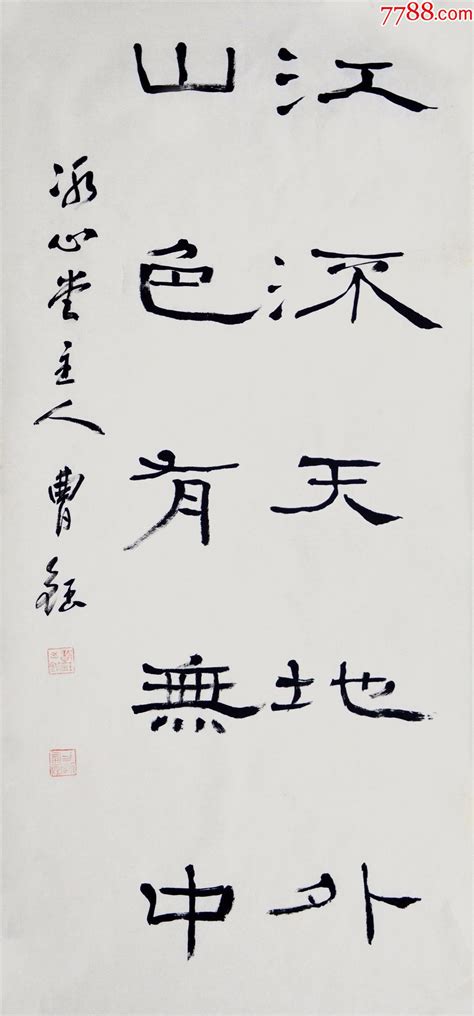 7788.com
江流天地外
山色有無中
心堂主人曹